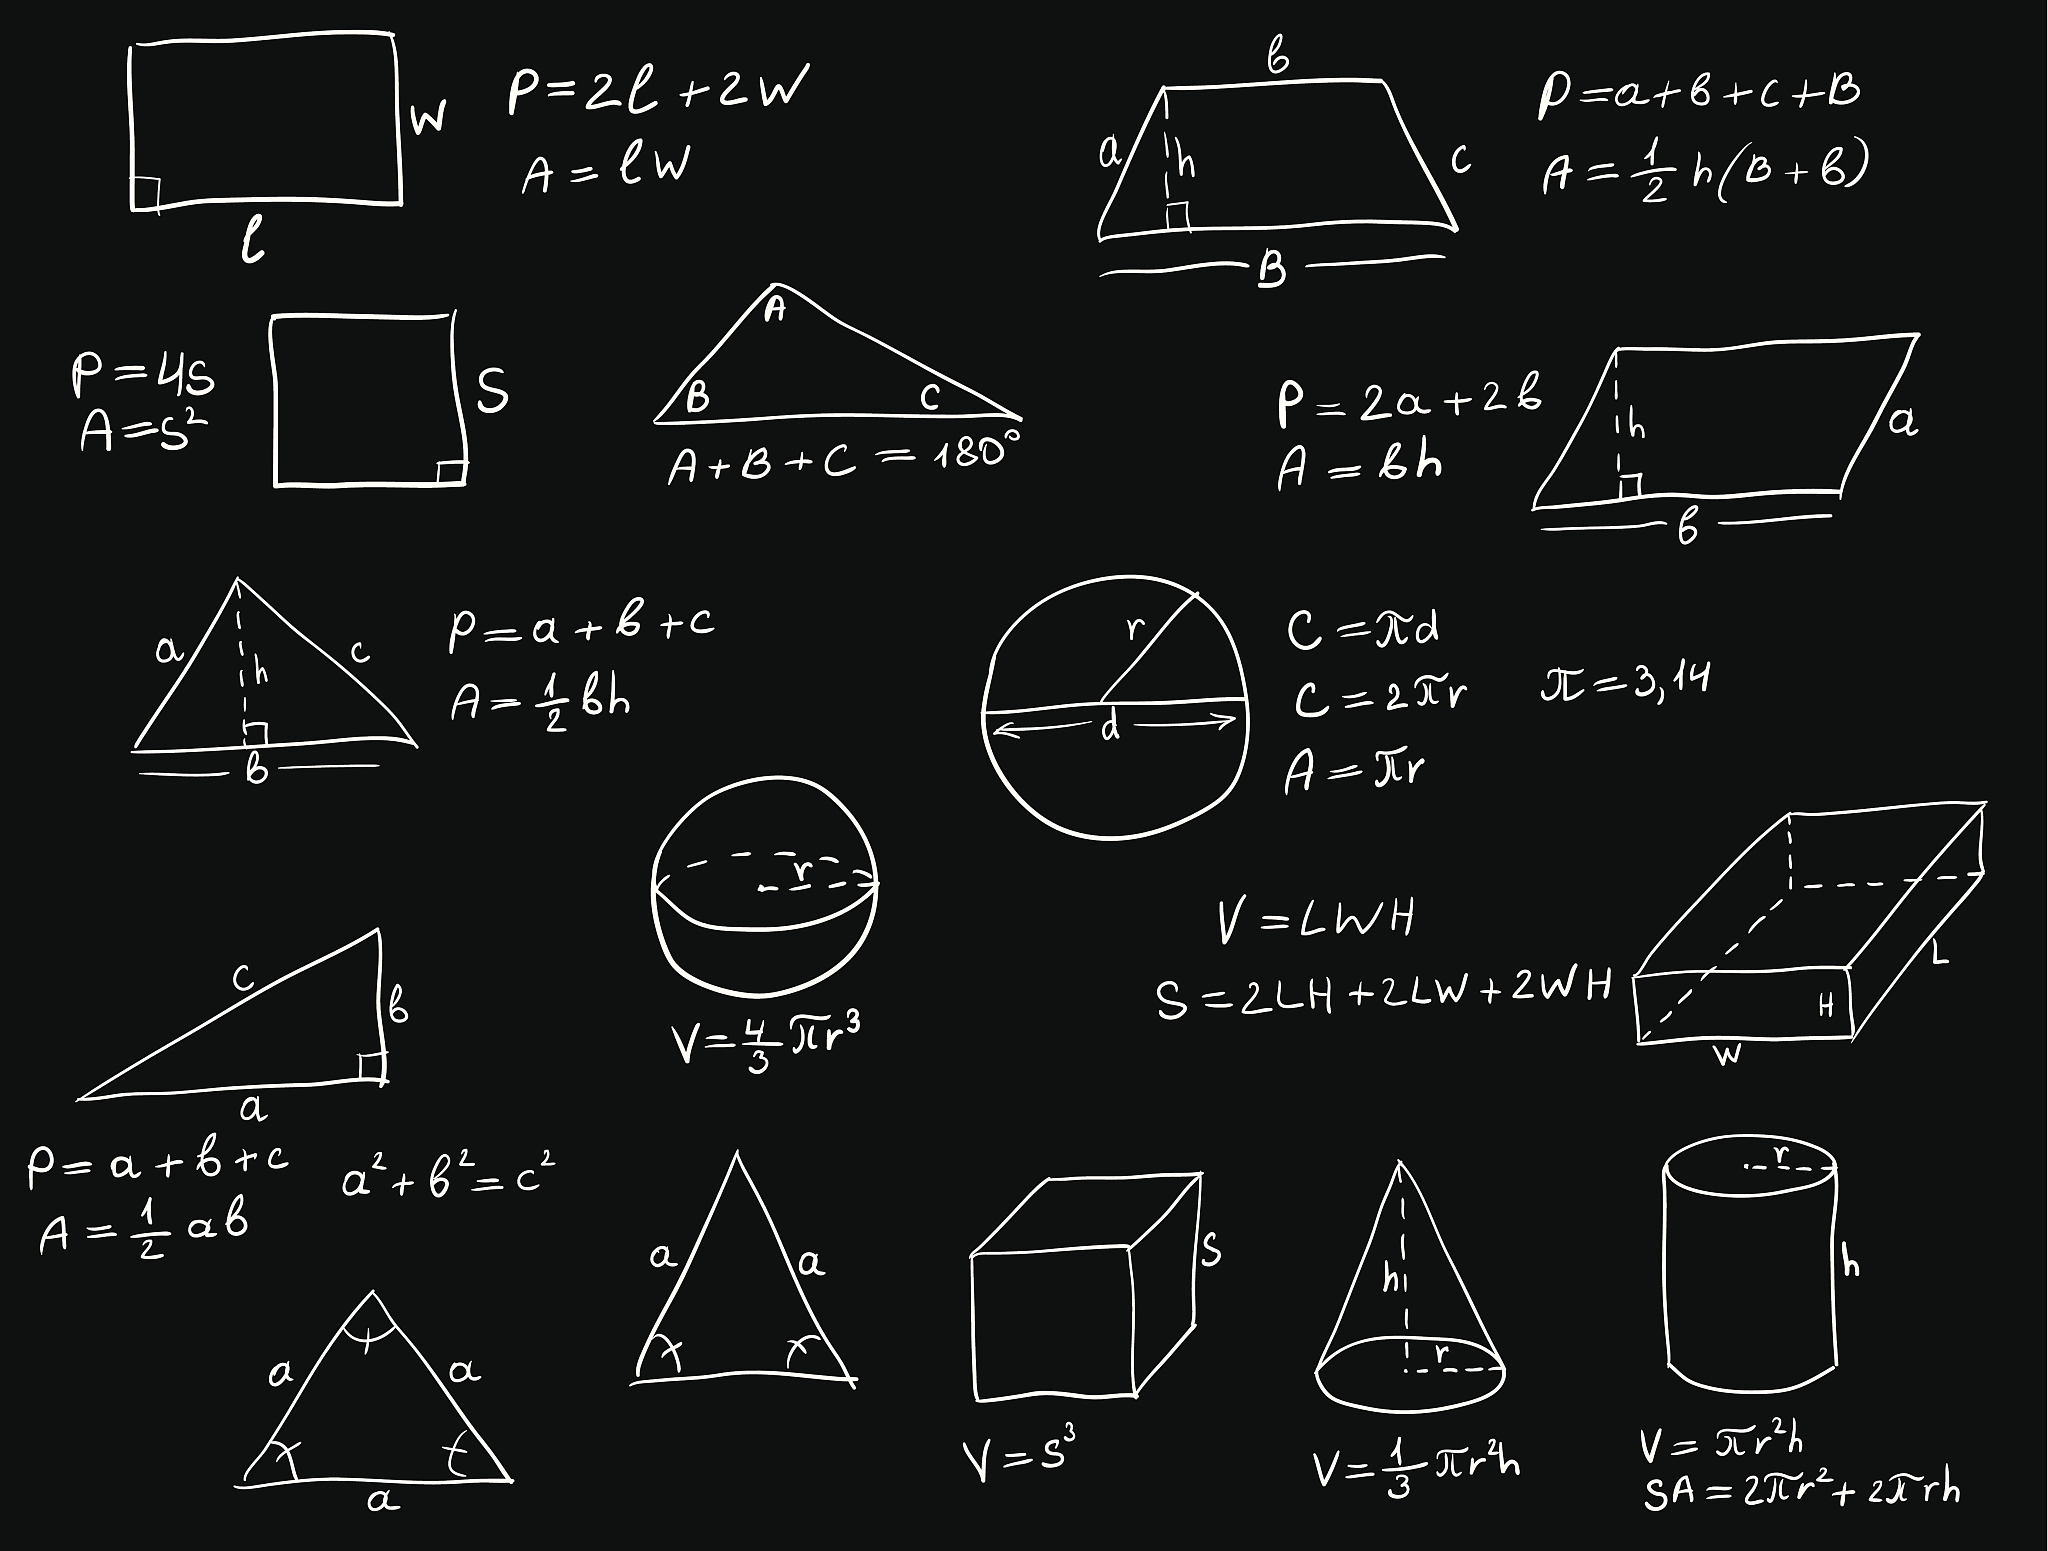 w
P=2l+2w
A=lw
l
b
a
h
c
B
P=a+b+c+B
A=1/2 h(B+b)
P=4s
A=s²
S
A
B
C
A+B+C=180°
P=2a+2b
A=bh
h
a
b
a
h
c
b
P=a+b+c
A=1/2 bh
r
d
C=πd
C=2πr
A=πr
π=3,14
r
V=4/3 πr³
V=LWH
S=2LH+2LW+2WH
L
H
W
c
b
a
P=a+b+c
A=1/2 ab
a²+b²=c²
a
a
a
a
a
S
V=s³
h
r
V=1/3 πr²h
r
h
V=πr²h
SA=2πr²+2πrh